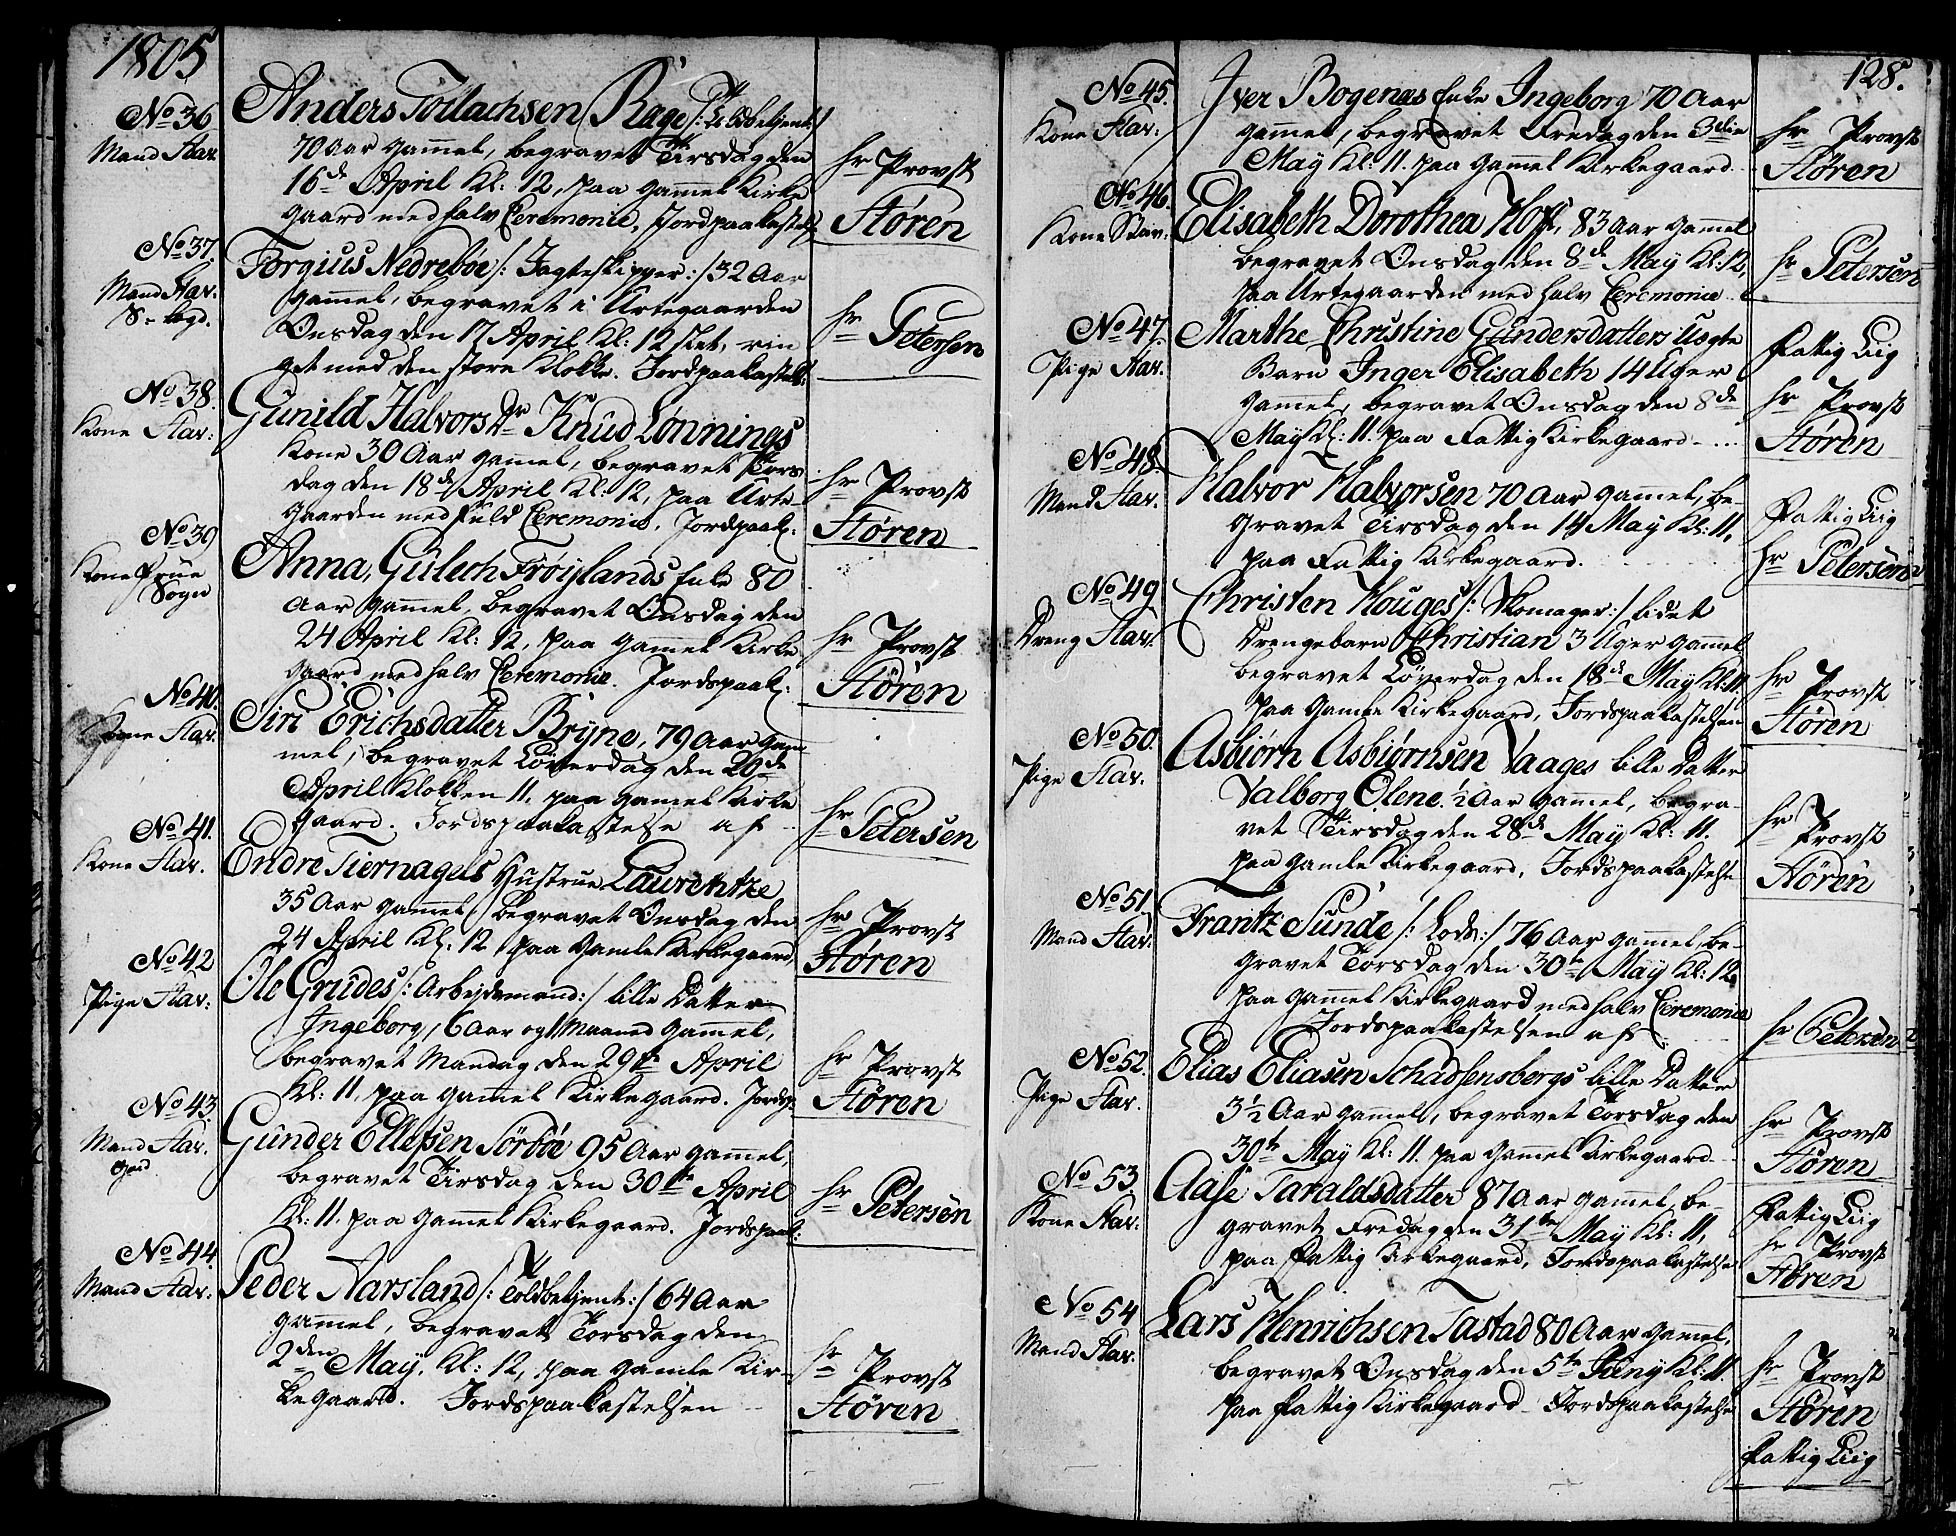 1805
No 36
Mand Stav.
Anders Torlachsen Rage /: Toldbetjent :/
70 Aar gammel, begravet Tirsdag den
16de April Kl: 12, paa gammel Kirke
gaard med halv Ceremonie, Jordpaakastels
hr Provst
Støren
No 37.
Mand Stav.
Torgius Nedreboe /: Jagteskipper :/ 32 Aar
gammel, begravet i Urtegaarden
Onsdag den 17 April Kl: 12 slet, rin
get med den store Klokke. Jordpaakastels:
hr Petersen
No 38.
Kone Stav:
Gunild Halvors Dr Knud Lønnings
Kone 30 Aar gammel, begravet Tors
dag den 18de April Kl: 12, paa Urte
gaarden med fuld Ceremonie. Jordpaak:
hr Provst
Støren
No 39
Kone Frue
Sogn
Anna, Gulech Frøylands Enke 80
Aar gammel, begravet Onsdag den
24 April Kl: 12, paa gammel Kirke
gaard med halv Ceremonie. Jordspaak:
hr Provst
Støren
No 40.
Kone Stav.
Siri Erichsdatter Bryne, 79 Aar gam
mel, begravet Løverdag den 20de
April Klokken 11. paa gamel Kirke
gaard. Jordspaakastelse af
hr Petersen
No 41.
Kone Stav.
Endre Tiernagels Hustrue Laurentze
35 Aar gammel, begravet Onsdag den
24 April Kl: 12 paa Gamle Kirkegaard
hr Provst
Støren
No 42
Pige Stav:
Ole Grudes /: Arbejdsmand :/ lille Datter
Ingeborg, 6 Aar og 1 Maaned gammel,
begravet Mandag den 29te April
Kl: 11, paa gammel Kirkegaard. Jordsp:
hr Provst
Støren
No 43
Mand Stav.
Gunder Ellefsen Sørboe 95 Aar gammel,
begravet Tirsdag den 30te April
Kl: 11. paa gammel Kirkegaard. Jordspaak:
hr Petersen
No 44.
Mand Stav.
Peder Aarsland /: Toldbetjent :/ 64 Aar
gammel, begravet Torsdag den
2den May, Kl: 12, paa gamle Kir-
kegaard. Jordspaakastelsen
hr Provst
Støren
128.
No 45.
Kone Stav:
Iver Bogenæs Enke Ingeborg 70 Aar
gammel, begravet Fredag den 3die
May Kl: 11. paa gammel Kirkegaard
hr Provst
Støren
No 46.
Kone Stav:
Elisabeth Dorothea Hoff, 83 Aar gammel
begravet Onsdag den 8de May Kl: 12,
paa Urtegaarden med halv Ceremonie
hr Petersen
No 47.
Pige Stav.
Marthe Christine Gundersdatters uægte
Barn Inger Elisabeth 14 Uger
gammel, begravet Onsdag den 8de
May Kl: 11. paa Fattig Kirkegaard
Fattig Liig
hr Provst
Støren
No 48.
Mand Stav.
Halvor Halvorsen 70 Aar gammel, be-
gravet Tirsdag den 14 May Kl: 11,
paa Fattig Kirkegaard.
Fattig Liig
hr Petersen
No 49.
Dreng Stav.
Christen Houges /: Skomager :/ lidet
Drengebarn Christian 3 Uger gammel
begravet Løverdag den 18de May Kl: 11
paa gamle Kirkegaard, Jordspaakastelsen
hr Provst
Støren
No 50.
Pige Stav.
Asbiørn Asbiørnsen Vaages lille Datter
Valborg Olene ½ Aar gammel, begra-
vet Tirsdag den 28de May Kl: 11.
paa gamle Kirkegaard, Jordspaakastelse
hr Provst
Støren
No 51
Mand Stav.
Frantz Sunde /: Lods :/ 76 Aar gammel, be-
gravet Torsdag den 30te May Kl: 12
paa gammel Kirkegaard med halv Ceremonie
Jordspaakastelsen af
hr Petersen
No 52.
Pige Stav.
Elias Eliasen Schadsensbergs lille Datter
3½ Aar gamel, begravet Torsdag den
30te May Kl: 11. paa gammel Kirkegaard
hr Provst
Støren
No 53
Kone Stav.
Aase Taraldsdatter 87 Aar gammel be-
gravet Fredag den 31te May Kl: 11,
paa Fattig Kirkegaard, Jordspaakastelse
Fattig Liig
hr Provst
Støren
No 54
Mand Stav.
Lars Henrichsen Tastad 80 Aar gamel,
begravet Onsdag den 5te Juny Kl: 11.
paa Fattig Kirkegaard Jordspaakastelse
hr Provst
Støren
Fattig Liig